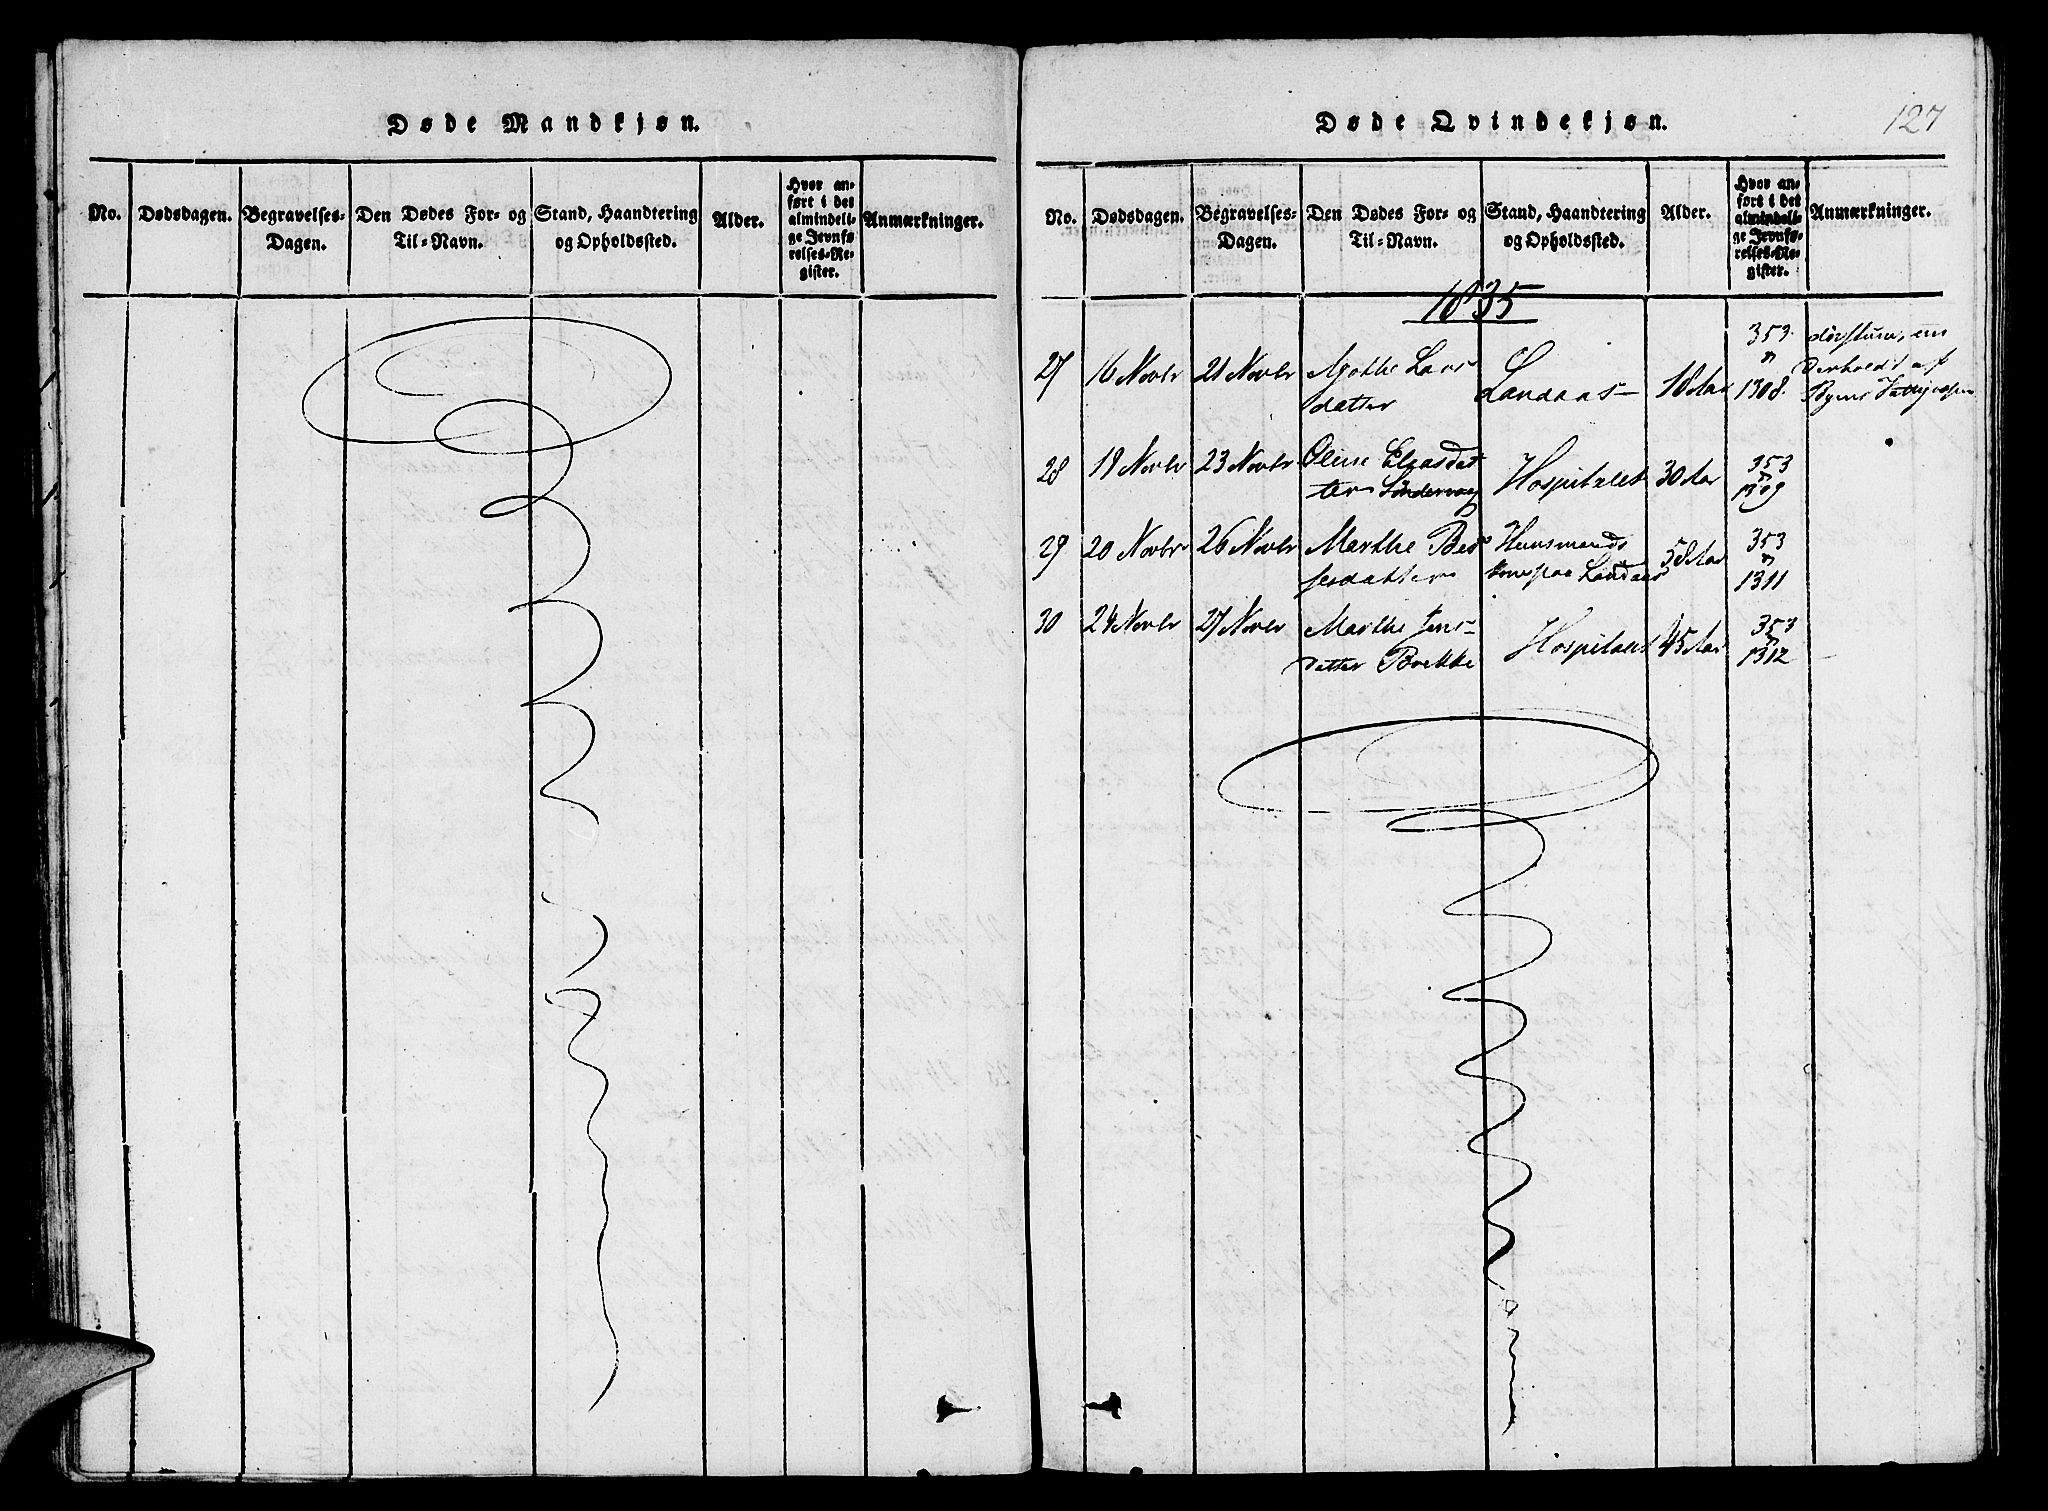 Døde Mandkjøn.
No.
Dødsdagen.
Begravelses-
Dagen.
Den Dødes For- og
Til-Navn.
Stand, Haandtering
og Opholdssted.
Alder.
Hvor an-
ført i det
almindeli-
ge Jevnfø-
relses-Re-
gister.
Anmærkninger.
Døde Qvindekjøn.
127
No.
Dødsdagen.
Begravelses-
Dagen.
Den Dødes For- og
Til-Navn.
Stand, Haandtering
og Opholdssted.
Alder.
Hvor an-
ført i det
almindeli-
ge Jevnfø-
relses-Re-
gister.
Anmærkninger.
1835
27 16 Novbr 21 Novbr Agathe Lars
datter
Landaas 18 Aar
353
1308.
derholdt af
Byens
28 19 Novbr 23 Novbr Oline Eliasdat
ter Søndervaag
Hospitalet 30 Aar
353
1309
29 20 Novbr 26 Novbr Marthe
datter
Huusmands
kone paa Landaas
58 Aar
353
1311
30 24 Novbr 27 Novbr Marthe Jens-
datter Brekke
Hospitalet 45 Aar
353
1312